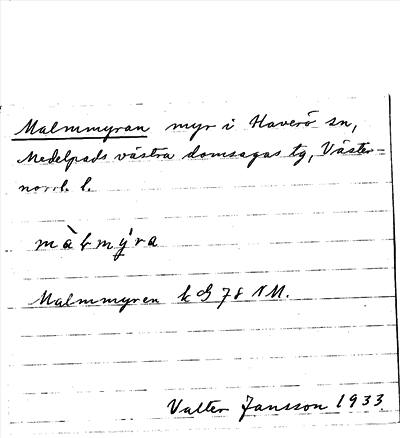 Malmmyran myr i Haverö sn,
Medelpads västra domsagas tg, Väster=
norrl. l.
màlmy̌ra
Malmmyren k G 78 NM.
Valter Jansson 1933.